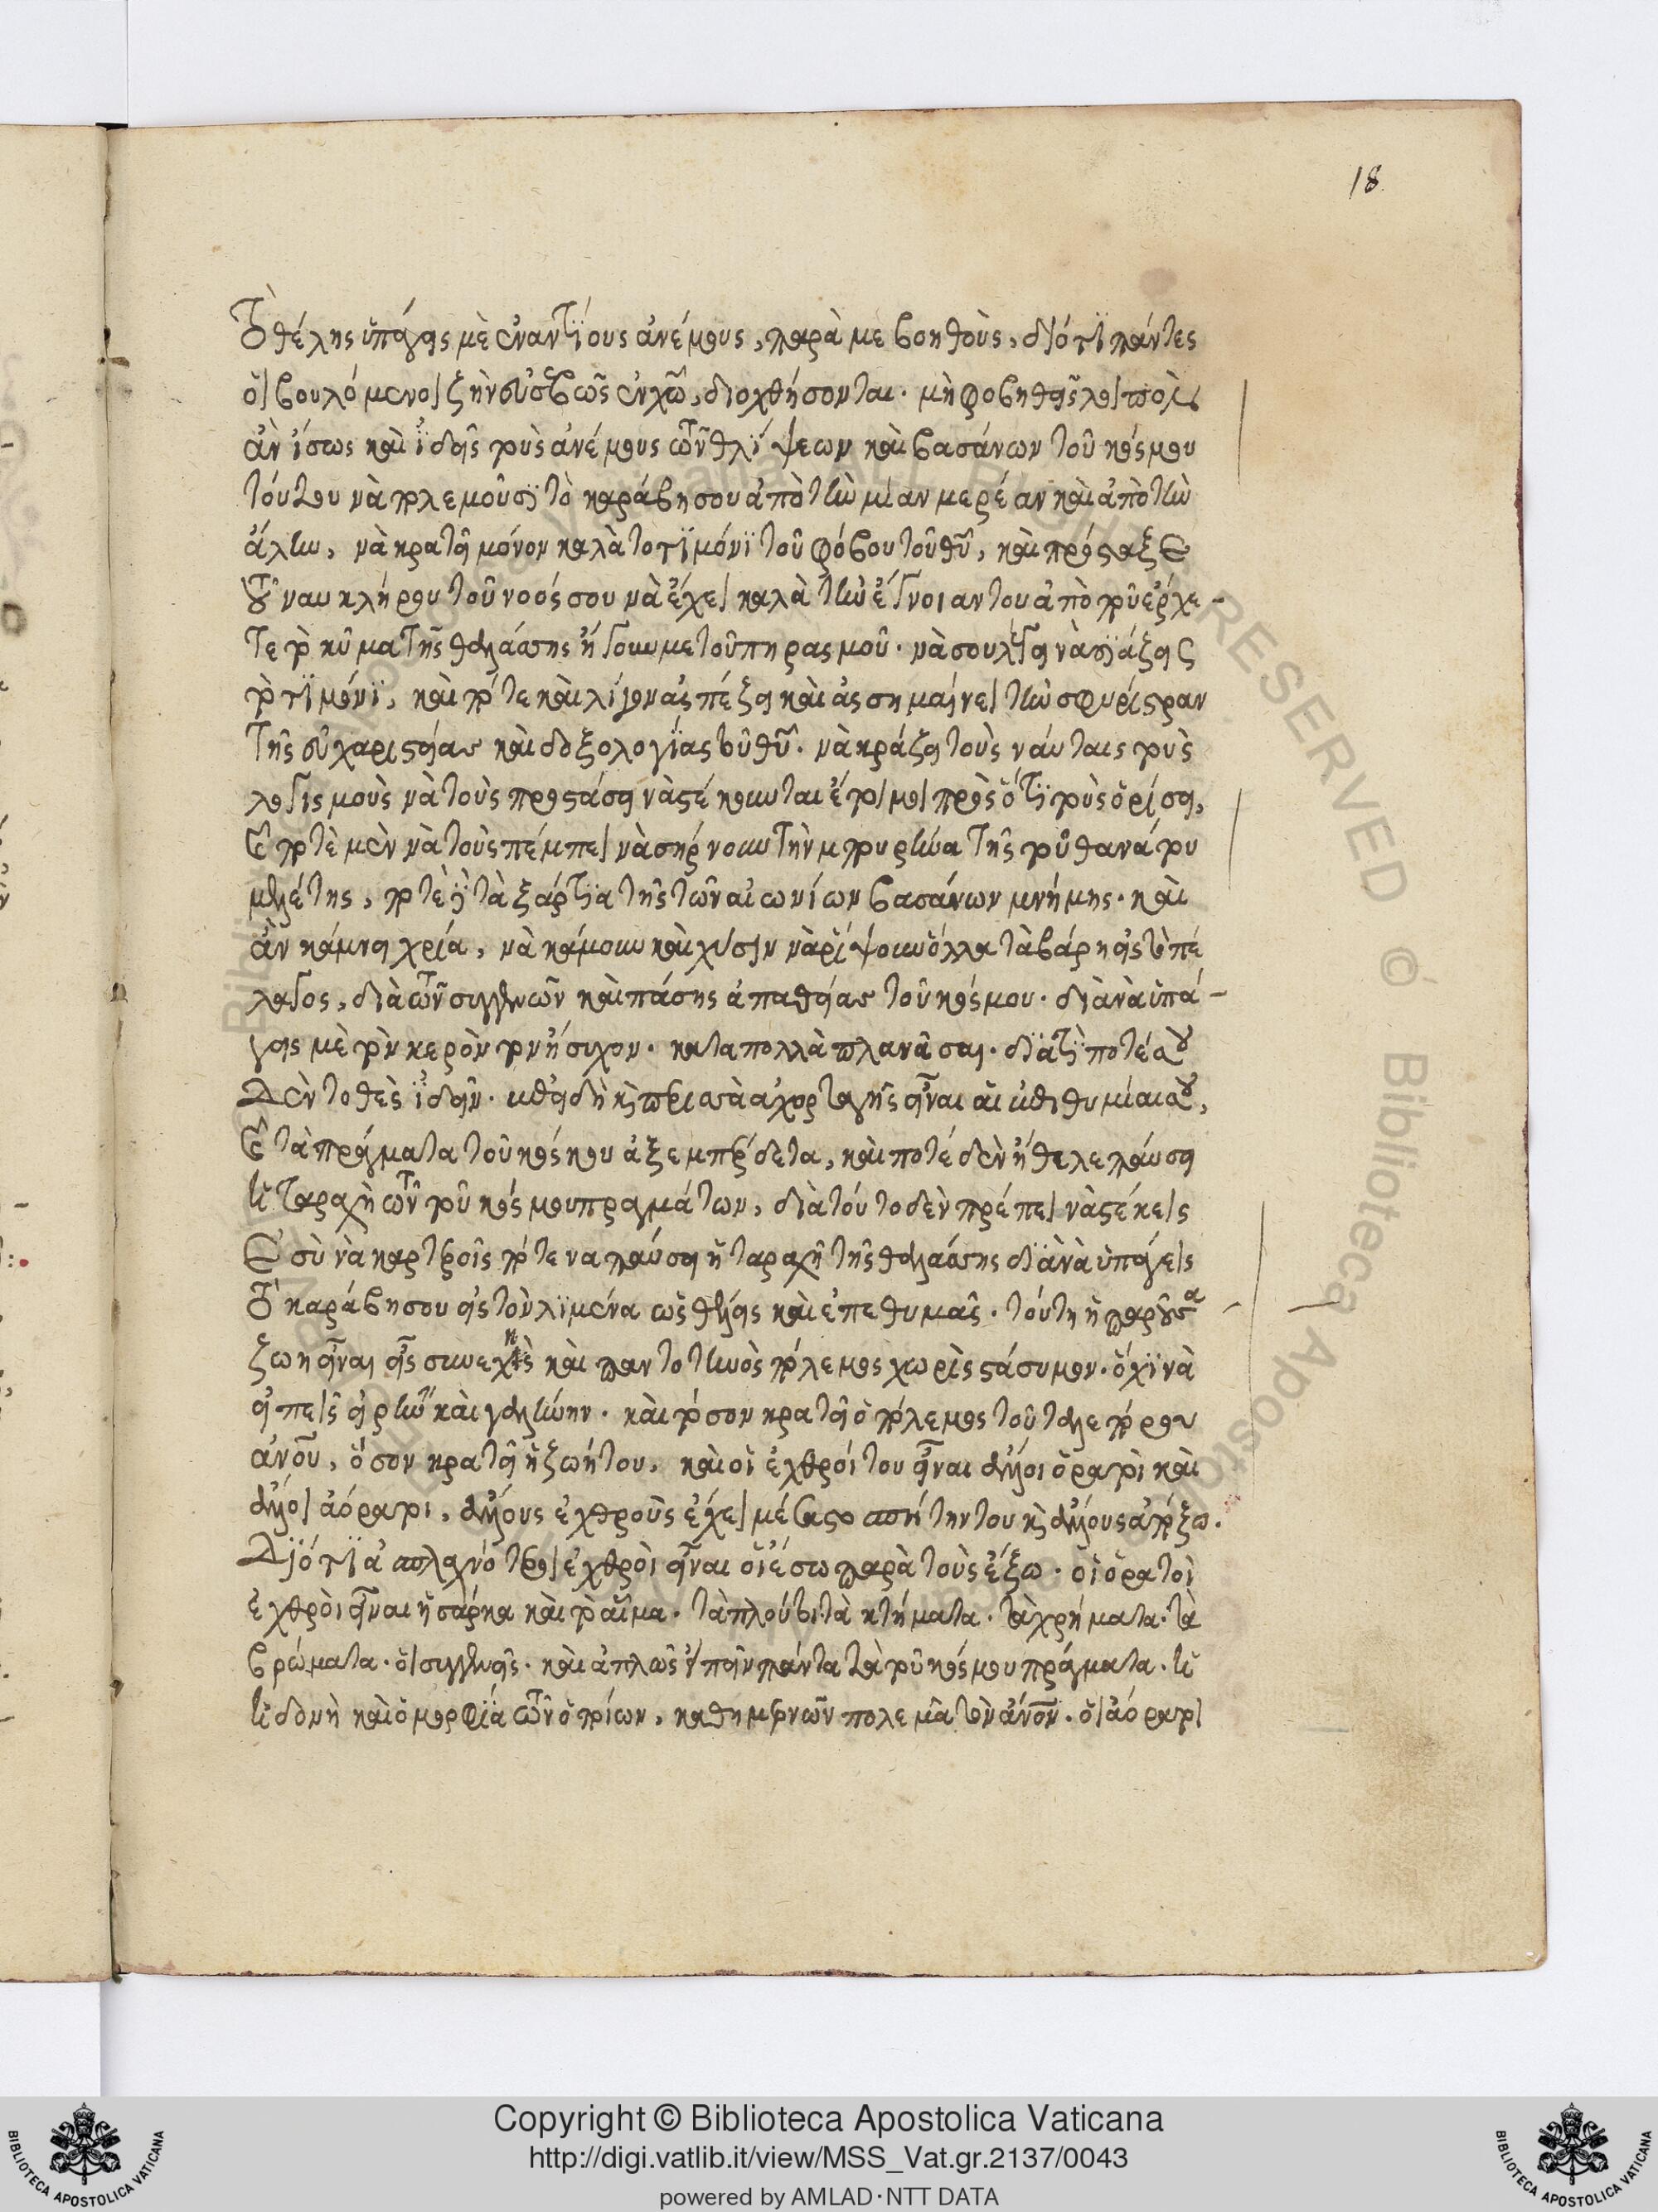 18
τὸ θέλης ὑπάγεις μὲ ἐναντίους ἀνέμους, παρὰ με βοηθοὺς, διότι πάντες
οἱ βουλόμενοι ζῆν εὐσεβῶς ἐν χῶ, διοχθήσονται. μὴ φοβηθῆς λοιπὸν
ἀν ἴσως καὶ ἰδῆς τοὺς ἀνέμους τῶν θλίψεων καὶ βασάνων τοῦ κόσμου
τούτου νὰ πολεμοῦσι τὸ καράβη σου ἀπὸ τὴν μίαν μερέαν καὶ ἀπὸ τὴν
ἄλην, νὰ κρατῆ μόνον καλὰ το τιμόνι τοῦ φόβου τοῦ θῦ, καὶ πρόσταξε
τὸν ναυκλήρου τοῦ νοός σου νὰ ἔχει καλὰ τὴν ἔγνοιαν του ἀπὸ ποῦ ἔρχε-
τε τὸ κῦμα τῆς θαλάσσης ἤγουν με τοῦ πηρασμοῦ. νὰ σου λέγη νὰ σιάζης
τὸ τιμόνι, καὶ πότε καὶ λίγον ἀς πέζη καὶ ἀς σημαίνει τὴν σφυρίστραν
τῆς εὐχαριστείας καὶ δοξολογίας τοῦ θῦ. νὰ κράζη τοὺς ναύταις τοὺς
λογισμοὺς νὰ τοὺς προστάση νὰ στέκουνται ἕτοιμοι πρὸς ὅτι τοὺς ὁρίση,
καὶ ποτὲ μὲν νὰ τοὺς πέμπει νὰ σηρνουν τὴν μποτουρίνα τῆς τοῦ θανάτου
μελέτης, ποτὲ δὲ τὰ ξάρτια τῆς τῶν αἰωνίων βασάνων μνήμης. καὶ
ἀν κάμνη χρία, νὰ κάμουν καὶ χύσιν νὰ ρίψουν ὅλλα τὰ βάρη εἰς τὸ πέ
λαγος, διὰ τῶν συγγενῶν καὶ πάσης ἀπαθείας τοῦ κόσμου. διὰ νὰ ὑπά-
γης μὲ τὸν κερὸν τὸν ἥσιχον. καταπολλὰ πλανᾶσαι. διατὶ ποτέ σου
Δὲν το θὲς ἰδῆν. ἐπειδὴ καὶ περισσὰ ἀχορταγῆς εἶναι αἱ ἐπιθυμίαι σου,
καὶ τὰ πράγματα τοῦ κόσκου ἀξεμπέρδετα, καὶ ποτέ δὲν ἤθελε παύση
ἡ ταραχὴ τῶν τοῦ κόσμου πραγμάτων, διὰ τούτο δὲν πρέπει νὰ στέκεις
Ἐσὺ νὰ καρτεροῖς πότε να παύση ἡ ταραχὴ τῆς θαλάσσης διὰ νὰ ὑπάγεις
τὸ καράβη σου εἰς τὸν λιμένα ὡς θέλεις καὶ ἐπεθυμᾶς. τούτη ἡ παροῦσα
ζωη εἶναι εἷς συνεχὴς καὶ παντοτινὸς πόλεμος χωρὶς στάσυμον. ὄχι νὰ
εἰπεῖς εἰρήνη καὶ γαλήνην. καὶ τόσον κρατῆ ὁ πόλεμος τοῦ ταλεπόρου
ἀνοῦ, ὅσον κρατῆ ἡ ζωή του, καὶ οἱ ἐχθροί του εἶναι ἄλλοι ὁρατοὶ καὶ
ἄλλοι ἀόρατοι, ἄλλους ἐχθροὺς ἔχει μέσα στο σπήτην του καὶ ἄλλους ἀπόξω.
Διότι ἀσπλαχνότεροι ἐχθροὶ εἶναι οἱ ἔσω παρὰ τοὺς ἔξω. οἱ ὁρατοὶ
ἐχθροὶ εἶναι ἡ σάρκα καὶ τὸ αἷμα. τὰ πλούτι. τὰ κτήματα. τὰ χρήματα. τὰ
βρώματα. οἱ συγγενεῖς. καὶ ἁπλῶς εἰπεῖν πάντα τὰ τοῦ κόσμου πράγματα. ἡ
ἡδονὴ καὶ ὁμορφία τῶν ὁποίων, καθημερνῶν πολεμᾶ τὸν ἄνον. οἱ ἀόρατοι
Copyright © Biblioteca Apostolica Vaticana
http://digi.vatlib.it/view/MSS_Vat.gr.2137/0043
powered by AMLAD·NTT DATA
BIBLIOTECA APOSTOLICA VATICANA
BIBLIOTECA APOSTOLICA VATICANA